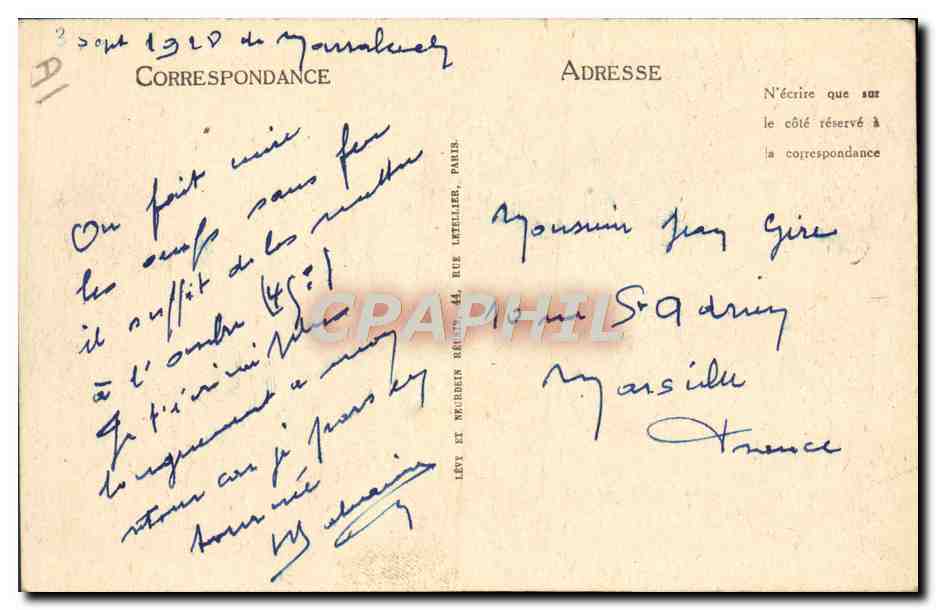 3 Sept 1928 de Marrakech
A1
CORRESPONDANCE
ADRESSE
N'écrire que sur
le côté réservé à
la correspondance
On fait cuire
les oeufs sans feu
il suffit de les mettre
à l'ombre (45°)
Je t'écrirai plus
longuement a mon
retour car je pars en
tournée
LÉVY ET NEURDEIN RÉUNIS, 44, RUE LETELLIER, PARIS.
Monsieur Jean Gire
10 rue St Adrien
Marseille
France
CPAPHIL